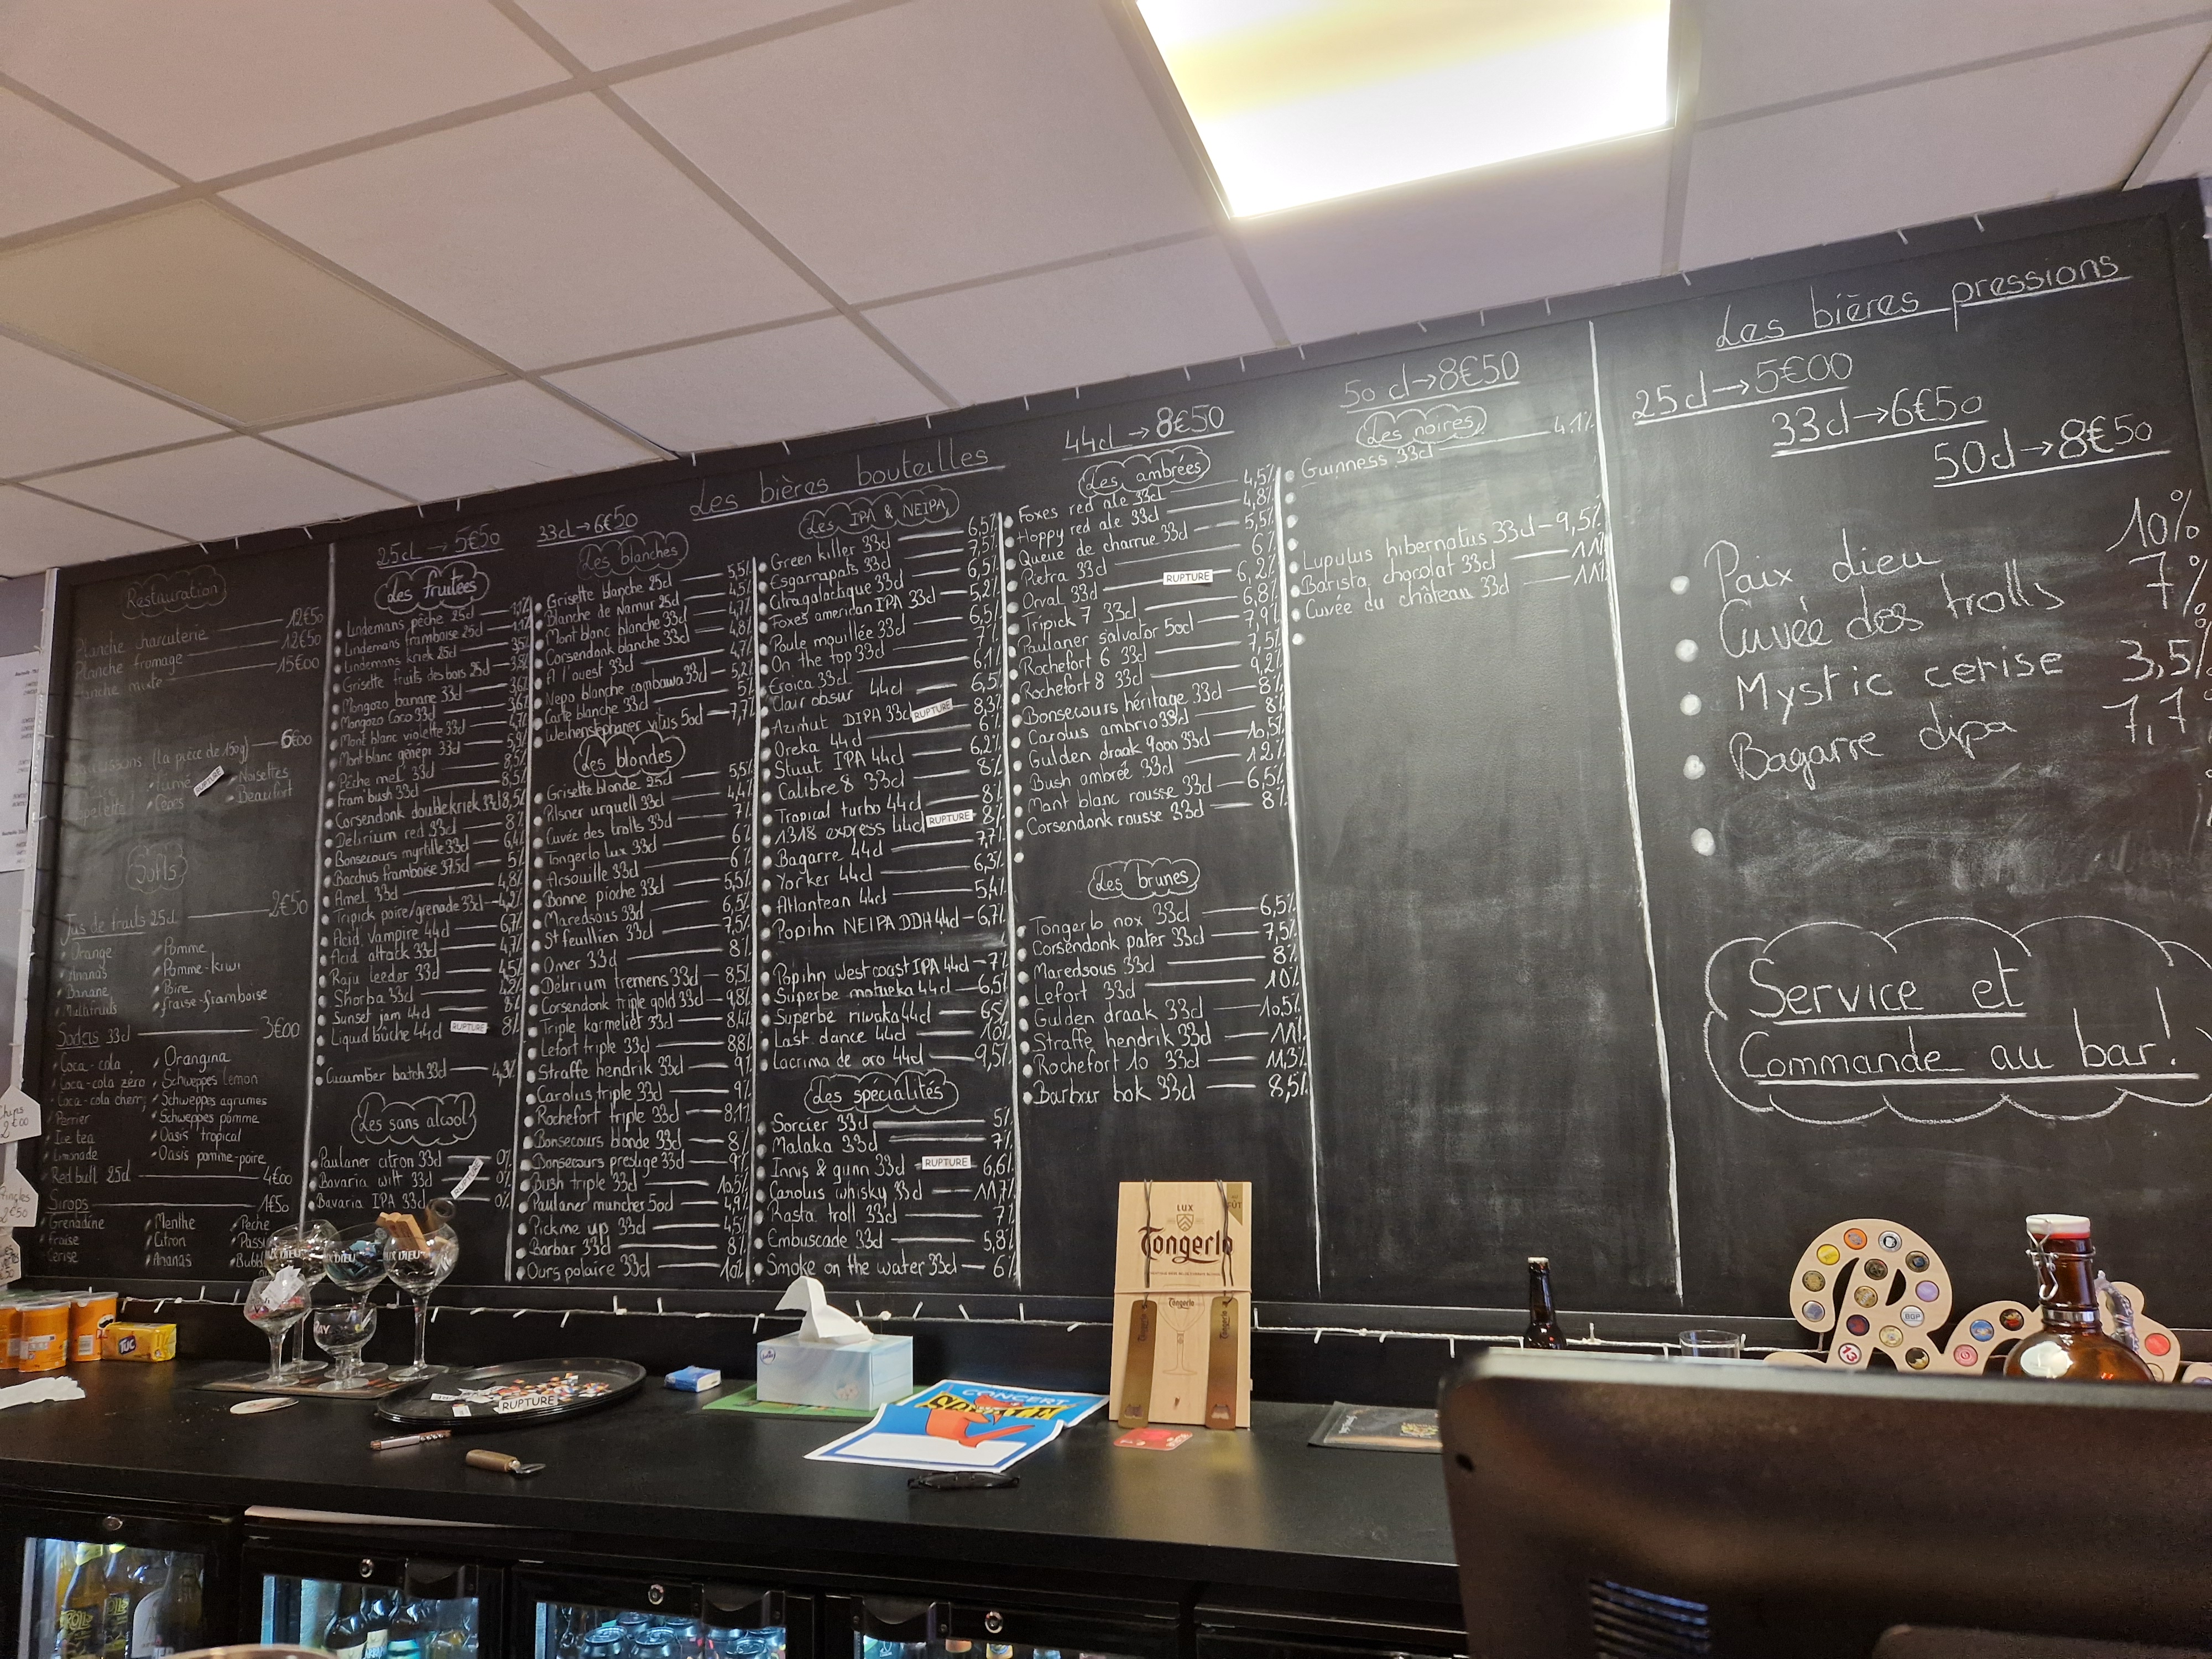 Les bières bouteilles
Restauration
Planche charcuterie 12€50
Planche fromage 12€50
Planche mixte 15€00
(la pièce de 150g) 6€00
fumé
Cèpes
RUPTURE
Noisettes
Beaufort
Softs
Jus de fruits 25cl 2€50
Orange
Ananas
Banane
Multifruits
Pomme
Pomme-kiwi
Poire
fraise-framboise
Sodas 33cl 3€00
Coca-cola
Coca-cola zéro
Coca-cola cherry
Perrier
Ice tea
Limonade
Orangina
Schweppes lemon
Schweppes agrumes
Schweppes pomme
Oasis tropical
Oasis pomme-poire
Red bull 25cl 4€00
Sirops 1€50
Grenadine
Fraise
Cerise
Menthe
Citron
Ananas
Pêche
25cl → 5€50
Les fruitées
Lindemans pêche 25cl
Lindemans framboise 25cl
Lindemans kriek 25cl
Grisette fruits des bois 25cl
Mongozo banane 33cl
Mongozo coco 33cl
Mont blanc violette 33cl
Mont blanc génépi 33cl
Pêche mel 33cl 8,5%
Fram bush 33cl 8,5%
Corsendonk double kriek 33cl 8,5%
Délirium red 33cl 8%
Bonsecours myrtille 33cl
Bacchus framboise 37,5cl 5%
Amel 33cl
Tripick poire/grenade 33cl
Acid vampire 44cl
Acid attack 33cl
Raju leeder 33cl
Shorba 33cl
Sunset jam 44cl
Liquid bûche 44cl RUPTURE 8%
Cucumber batch 33cl
Les sans alcool
Paulaner citron 33cl 0%
Bavaria wit 33cl RUPTURE
Bavaria IPA 33cl 0%
33cl → 6€50
Les blanches
Grisette blanche 25cl 5,5%
Blanche de namur 25cl 4,5%
Mont blanc blanche 33cl 4,7%
Corsendonk blanche 33cl 4,8%
A l'ouest 33cl 4,7%
Nepo blanche combawa 33cl 5,2%
Carte blanche 33cl 5%
Weihenstephaner vitus 50cl 7,7%
Les blondes
Grisette blonde 25cl 5,5%
Pilsner urquell 33cl 4,4%
Cuvée des trolls 33cl 7%
Tongerlo lux 33cl 6%
Arsouille 33cl 6%
Bonne pioche 33cl 5,5%
Maredsous 33cl 6,5%
St feuillien 33cl 7,5%
Omer 33cl 8%
Délirium tremens 33cl 8,5%
Corsendonk triple gold 33cl 9,8%
Triple karmeliet 33cl 8,4%
Lefort triple 33cl 8,8%
Straffe hendrik 33cl 9%
Carolus triple 33cl 9%
Rochefort triple 33cl 8,1%
Bonsecours blonde 33cl 8%
Bonsecours prestige 33cl 9%
Bush triple 33cl 10,5%
Paulaner muncher 50cl 4,9%
Pick me up 33cl 4,5%
Barbar 33cl 8%
Ours polaire 33cl 10%
Les IPA & NEIPA
Green killer 33cl 6,5%
Esgarrapats 33cl 7,5%
Citragalactique 33cl 6,5%
Foxes american IPA 33cl 5,2%
Poule mouillée 33cl 6,5%
On the top 33cl 7%
Eroica 33cl 6,1%
Clair obsur 44cl 6,5%
Azimut DIPA 33cl RUPTURE 8,3%
Oreka 44cl 6%
Stuut IPA 44cl 6,2%
Calibre 8 33cl 8%
Tropical turbo 44cl 8%
1318 express 44cl RUPTURE 8%
Bagarre 44cl 7,7%
Yorker 44cl 6,3%
Atlantean 44cl 5,4%
Popihn NEIPA DDH 44cl 6,7%
Popihn west coast IPA 44cl 7%
Superbe motueka 44cl 6,5%
Superbe riwaka 44cl 6,5%
Last dance 44cl 10%
Lacrima de oro 44cl 9,5%
Les spécialités
Sorcier 33cl 5%
Malaka 33cl 7%
Innis & gunn 33cl RUPTURE 6,6%
Carolus whisky 33cl 11,7%
Rasta troll 33cl 7%
Embuscade 33cl 5,8%
Smoke on the water 33cl 6%
44cl → 8€50
Les ambrées
Foxes red ale 33cl 4,5%
Hoppy red ale 33cl 4,8%
Queue de charrue 33cl 5,5%
Pietra 33cl 6%
Orval 33cl RUPTURE 6,2%
Tripick 7 33cl 6,8%
Paulaner salvator 50cl 7,9%
Rochefort 6 33cl 7,5%
Rochefort 8 33cl 9,2%
Bonsecours héritage 33cl 8%
Carolus ambrio 33cl 8%
Gulden draak 9000 33cl 10,5%
Bush ambrée 33cl 12%
Mont blanc rousse 33cl 6,5%
Corsendonk rousse 33cl 8%
Les brunes
Tongerlo nox 33cl 6,5%
Corsendonk pater 33cl 7,5%
Maredsous 33cl 8%
Lefort 33cl 10%
Gulden draak 33cl 10,5%
Straffe hendrik 33cl 11%
Rochefort 10 33cl 11,3%
Barbar bok 33cl 8,5%
50cl → 8€50
Les noires
Guinness 33cl 4,1%
Lupulus hibernatus 33cl 9,5%
Barista chocolat 33cl 11%
Cuvée du château 33cl 11%
Les bières pressions
25cl → 5€00
33cl → 6€50
50cl → 8€50
Paix dieu 10%
Cuvée des trolls 7%
Mystic cerise 3,5%
Bagarre dipa 7,7
Service et
Commande au bar!
Chips
2€00
2€50
TUC
RUPTURE
CONCERT
LUX
Tongerlo
Tongerlo